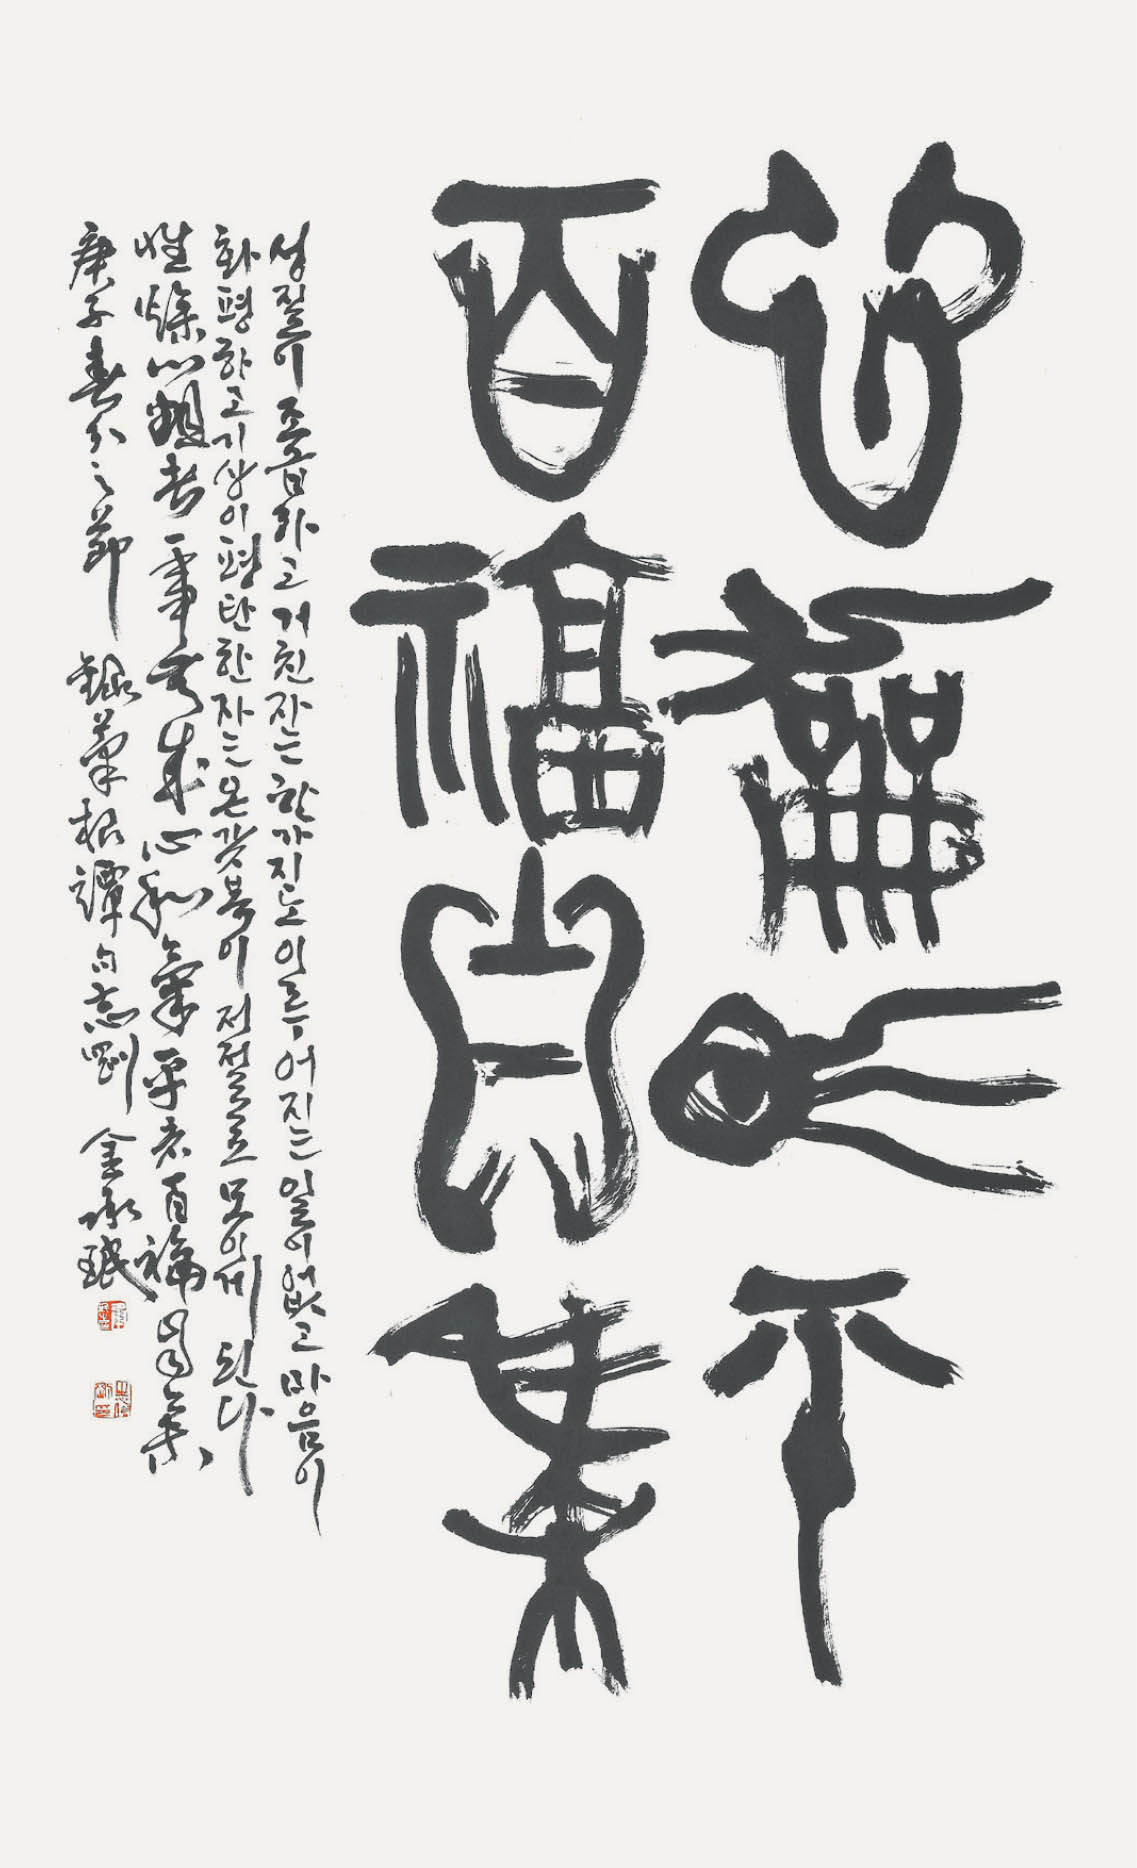 心龢氣平
百福自集
성질이 조급하고 거친 자는 한가지도 이루어지는 일이 없고 마음이
화평하고 기상이 평탄한 자는 온갖 복이 저절로 모이게 된다
性燥心粗者一事無成心和氣平者百福自集
庚子春分之節 錄菜根譚句志剛 金承珉